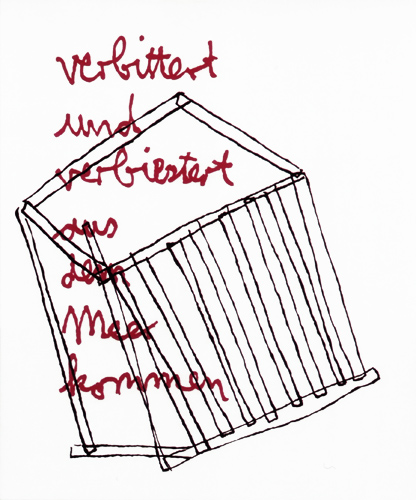 verbittert
und
verbiestert
aus
dem
Meer
kommen